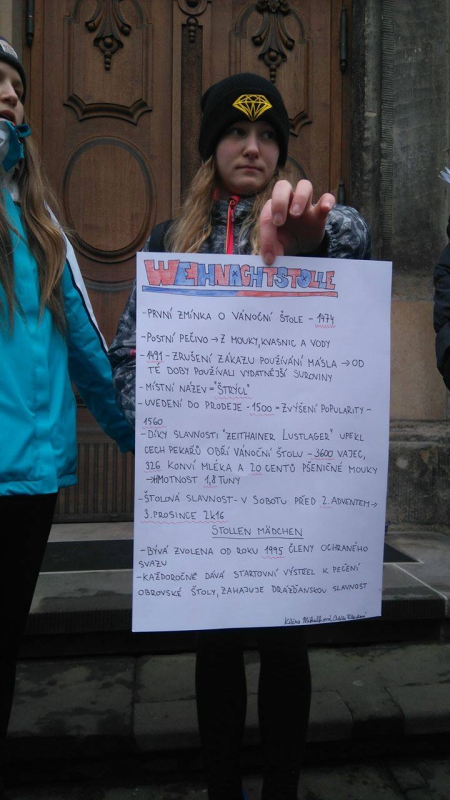 WEIHNACHTSTOLLE
- PRVNÍ ZMÍNKA O VÁNOČNÍ ŠTOLE - 1474
- POSTNÍ PEČIVO → Z MOUKY, KVASNIC A VODY
- 1491 - ZRUŠENÍ ZÁKAZU POUŽÍVÁNÍ MÁSLA → OD
TÉ DOBY POUŽÍVALI VYDATNĚJŠÍ SUROVINY
- MÍSTNÍ NÁZEV = "ŠTRYCL"
- UVEDENÍ DO PRODEJE - 1500 = ZVÝŠENÍ POPULARITY -
1560
- DÍKY SLAVNOSTI "ZEITHAINER LUSTLAGER" UPEKL
CECH PEKAŘŮ OBŘÍ VÁNOČNÍ ŠTOLU - 3600 VAJEC,
326 KONVÍ MLÉKA A 20 CENTŮ PŠENIČNÉ MOUKY
→ HMOTNOST 1,8 TUNY
- ŠTOLOVÁ SLAVNOST - V SOBOTU PŘED 2. ADVENTEM →
3. PROSINCE 2K16
STOLLEN MÄDCHEN
- BÝVÁ ZVOLENA OD ROKU 1995 ČLENY OCHRANÉHO
SVAZU
- KAŽDOROČNĚ DÁVÁ STARTOVNÍ VÝSTŘEL K PEČENÍ
OBROVSKÉ ŠTOLY, ZAHAJUJE DRÁŽĎANSKOU SLAVNOST